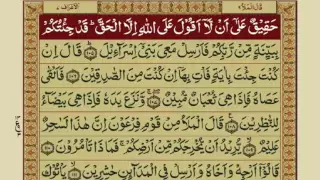 قال الملأ ٩
الاعراف ٧
حَقِيْقٌ عَلٰۤى اَنْ لَّاۤ اَقُوْلَ عَلَى اللّٰهِ اِلَّا الْحَقَّؕ قَدْ جِئْتُكُمْ
بِبَيِّنَةٍ مِّنْ رَّبِّكُمْ فَاَرْسِلْ مَعِىَ بَنِىْۤ اِسْرَآءِيْلَ ۝ قَالَ اِنْ
كُنْتَ جِئْتَ بِاٰيَةٍ فَاْتِ بِهَاۤ اِنْ كُنْتَ مِنَ الصّٰدِقِيْنَ ۝ فَاَلْقٰى
عَصَاهُ فَاِذَا هِىَ ثُعْبَانٌ مُّبِيْنٌ ۝ وَّنَزَعَ يَدَهٗ فَاِذَا هِىَ بَيْضَآءُ
لِلنّٰظِرِيْنَ ۝ قَالَ الْمَلَاُ مِنْ قَوْمِ فِرْعَوْنَ اِنَّ هٰذَا لَسٰحِرٌ
عَلِيْمٌ ۝ يُّرِيْدُ اَنْ يُّخْرِجَكُمْ مِّنْ اَرْضِكُمْۚ فَمَاذَا تَاْمُرُوْنَ ۝
قَالُوْۤا اَرْجِهْ وَاَخَاهُ وَاَرْسِلْ فِى الْمَدَآئِنِ حٰشِرِيْنَ ۝ يَاْتُوْكَ